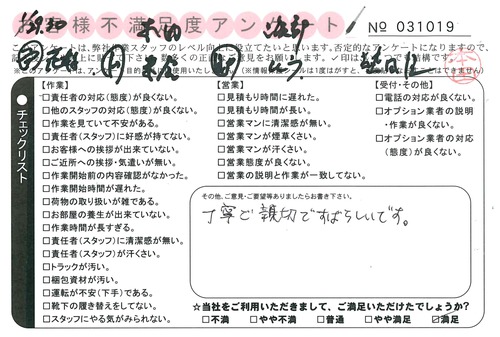 お客様不満足度アンケート
No 031019
チェックリスト
【作業】
□責任者の対応(態度)が良くない。
□他のスタッフの対応(態度)が良くない。
□作業を見ていて不安がある。
□責任者(スタッフ)に好感が持てない。
□お客様への挨拶が出来ていない。
□ご近所への挨拶・気遣いが無い。
□作業開始前の内容確認がなかった。
□作業開始時間が遅れた。
□荷物の取り扱いが雑である。
□お部屋の養生が出来ていない。
□作業時間が長すぎる。
□責任者(スタッフ)に清潔感が無い。
□責任者(スタッフ)が汗くさい。
□トラックが汚い。
□梱包資材が汚い。
□運転が不安(下手)である。
□靴下の履き替えをしてない。
□スタッフにやる気がみられない。
【営業】
□見積もり時間に遅れた。
□見積もり時間が長い。
□営業マンに清潔感が無い。
□営業マンが煙草くさい。
□営業マンが汗くさい。
□営業態度が良くない。
□営業の説明と作業が一致してない。
【受付・その他】
□電話の対応が良くない。
□オプション業者の説明
・作業が良くない。
□オプション業者の対応
(態度)が良くない。
その他、ご意見・ご要望等ありましたらお書き下さい。
丁寧で親切ですばらしいです。
☆当社をご利用いただきまして、ご満足いただけたでしょうか?
□不満 □やや不満 □普通 □やや満足 ☑満足